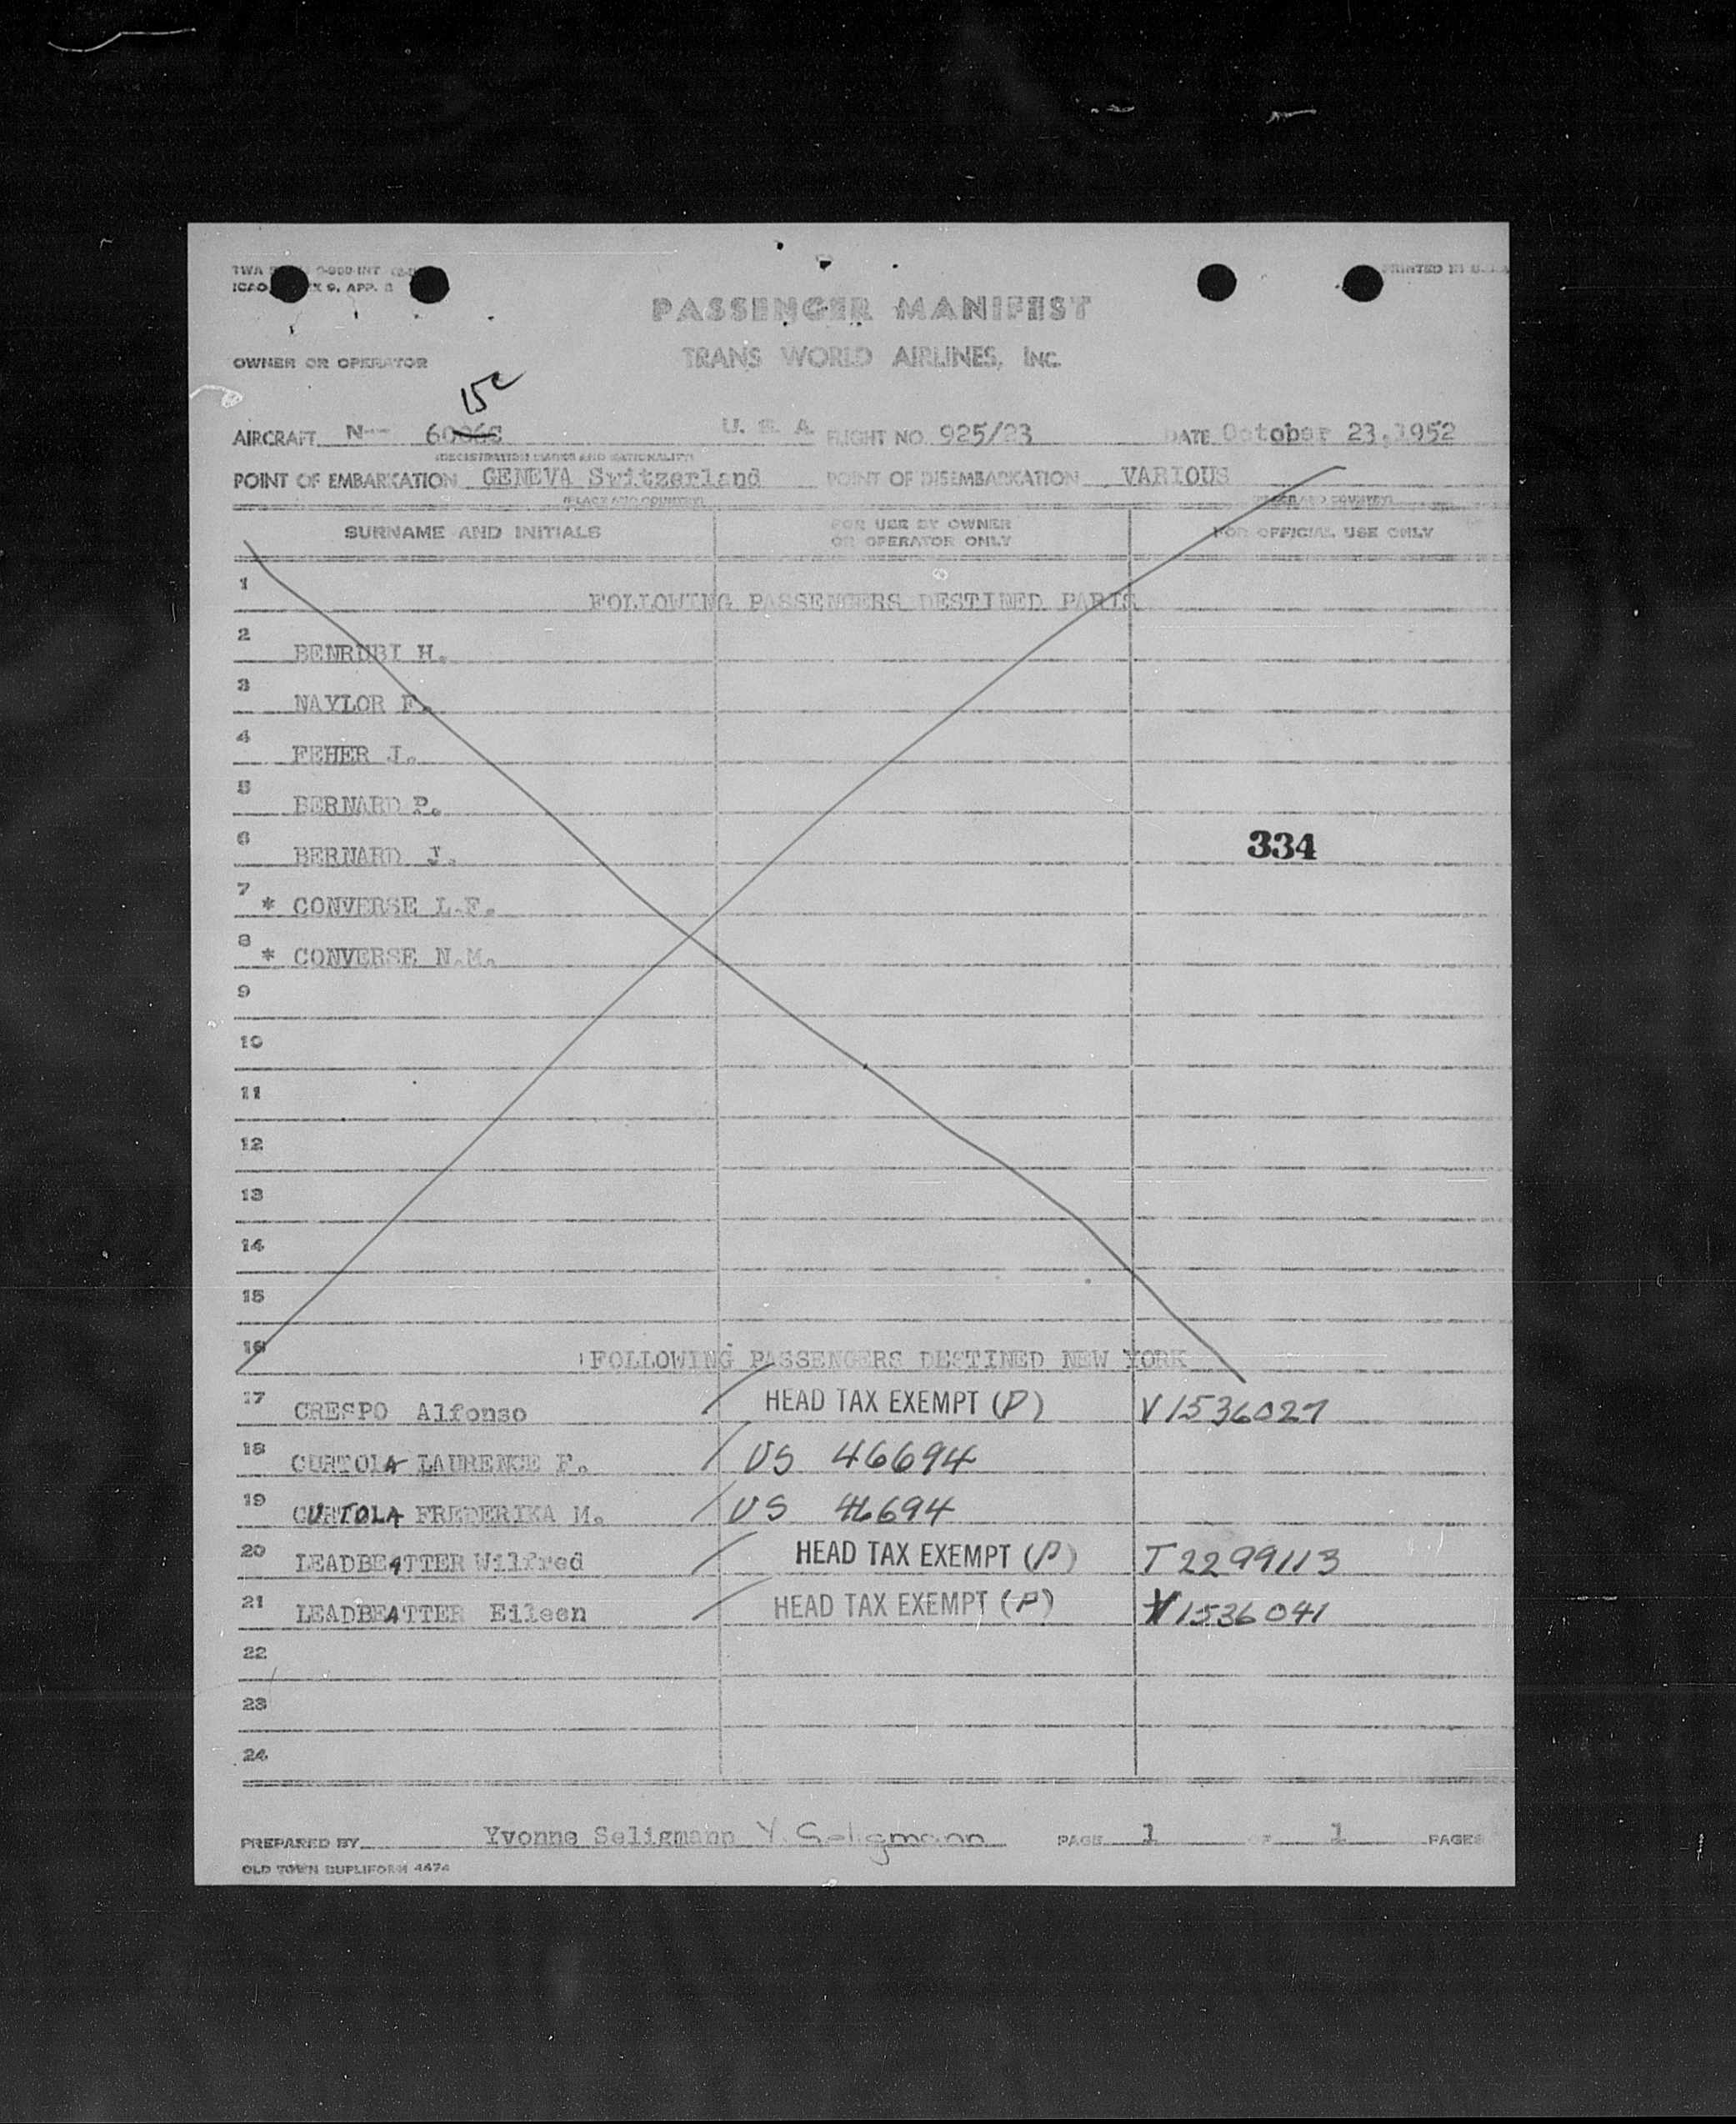 TWA
ICAO
9, APP.
PRINTED IN U.S.A.
PASSENGER MANIFEST
TRANS WORLD AIRLINES, INC.
OWNER OR OPERATOR
15c
AIRCRAFT N-- 6006C U. S. A. FLIGHT NO. 925/23 DATE October 23,1952
(REGISTRATION MARKS AND NATIONALITY)
POINT OF EMBARKATION GENEVA Switzerland POINT OF DISEMBARKATION VARIOUS
(PLACE AND COUNTRY) (PLACE AND COUNTRY)
SURNAME AND INITIALS FOR USE BY OWNER OR OPERATOR ONLY FOR OFFICIAL USE ONLY
1 FOLLOWING PASSENGERS DESTINED PARIS
2 BENRUBI H.
3 NAYLOR F.
4 FEHER J.
5 BERNARD P.
6 BERNARD J. 334
7 * CONVERSE L.F.
8 * CONVERSE N.M.
9
10
11
12
13
14
15
16 FOLLOWING PASSENGERS DESTINED NEW YORK
17 CRESPO Alfonso HEAD TAX EXEMPT (P) V1536027
18 CURTOLA LAURENCE F. US 46694
19 CURTOLA FREDERIKA M. US 46694
20 LEADBEATTER Wilfred HEAD TAX EXEMPT (P) T2299113
21 LEADBEATTER Eileen HEAD TAX EXEMPT (P) V1536041
22
23
24
PREPARED BY Yvonne Seligmann Y. Seligmann PAGE 1 OF 1 PAGES
OLD TOWN DUPLIFORM 4474